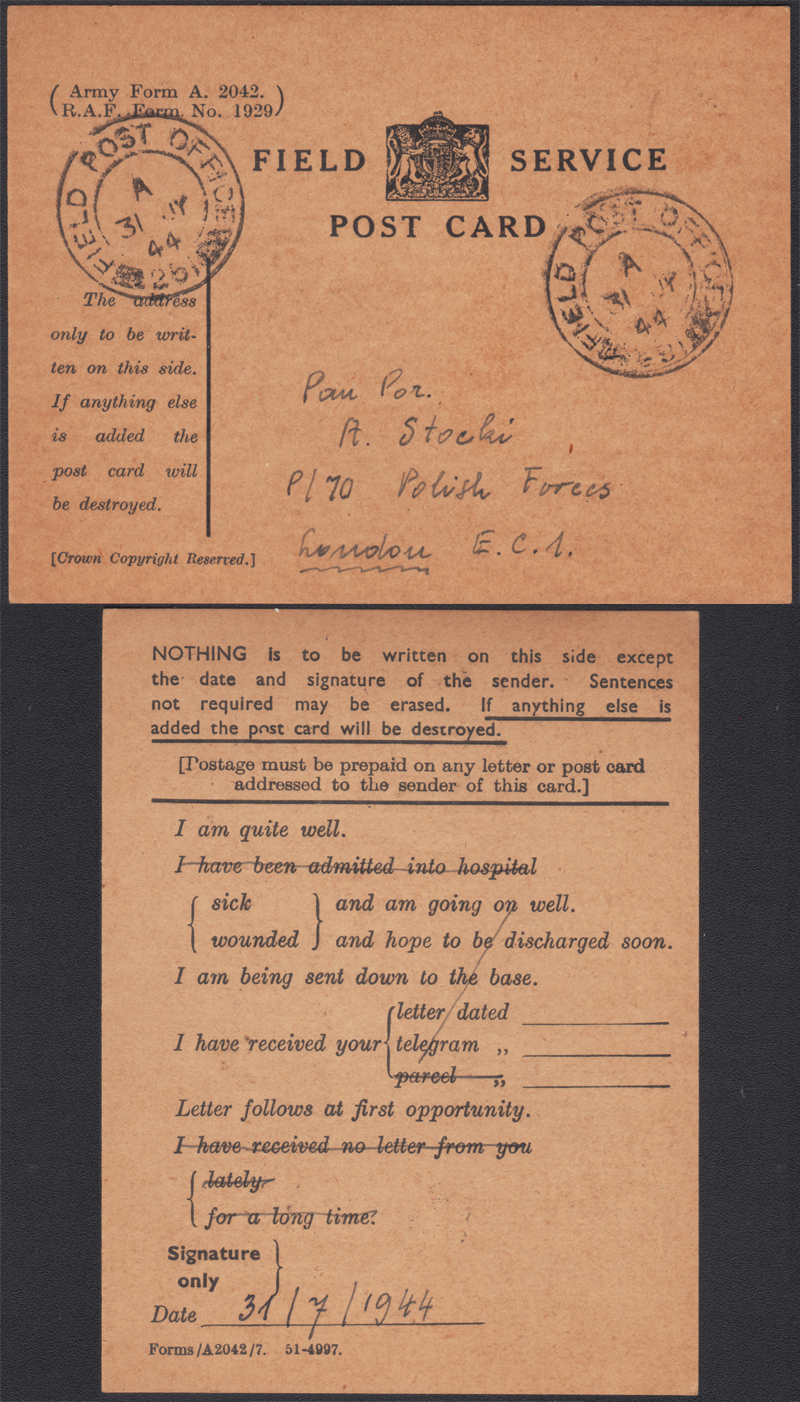 Army Form A. 2042.
R.A.F. Form No. 1929
FIELD SERVICE
POST CARD
FIELD POST OFFICE
A
31 JY
44
FIELD POST OFFICE
A
31 JY
44
The address
only to be writ-
ten on this side.
If anything else
is added the
post card will
be destroyed.
[Crown Copyright Reserved.]
Pan Por.
A. Stocki
P/70 Polish Forces
London E.C.1.
NOTHING is to be written on this side except
the date and signature of the sender. Sentences
not required may be erased. If anything else is
added the post card will be destroyed.
[Postage must be prepaid on any letter or post card
addressed to the sender of this card.]
I am quite well.
I have been admitted into hospital
sick and am going on well.
wounded and hope to be discharged soon.
I am being sent down to the base.
letter dated
I have received your telegram „
parcel „
Letter follows at first opportunity.
I have received no letter from you
lately.
for a long time.
Signature
only
Date 31/7/1944
Forms/A2042/7. 51-4997.